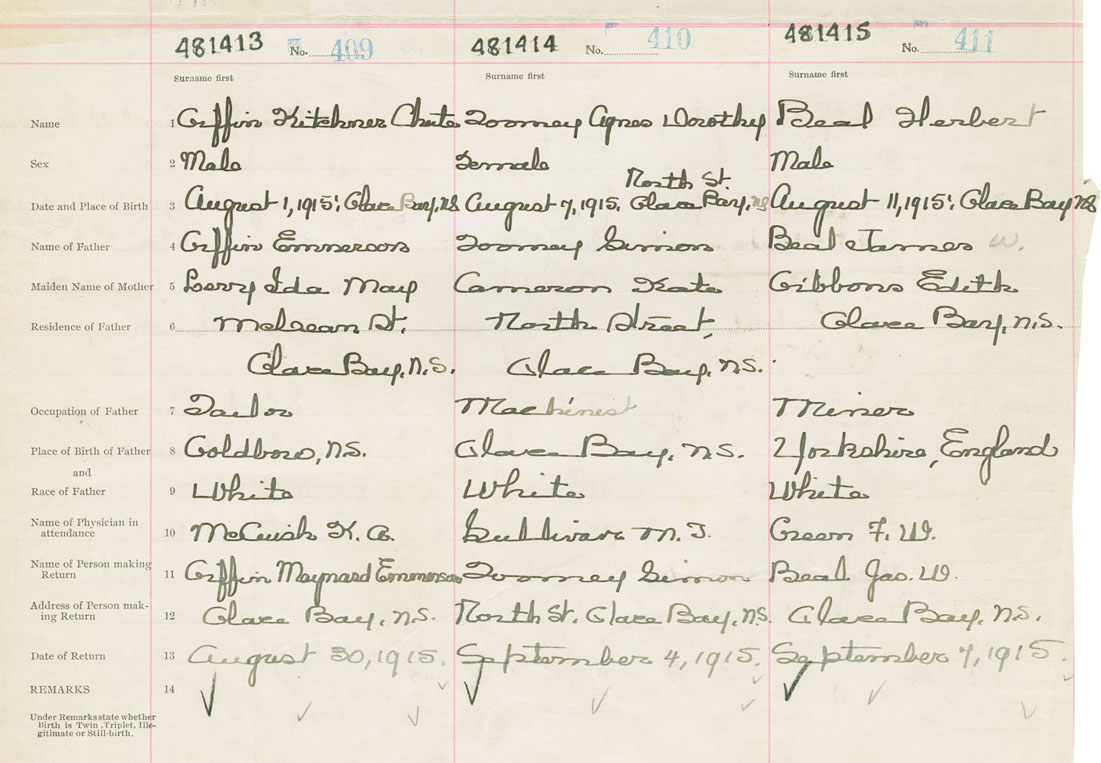 481413 No. 409 481414 No. 410 481415 No. 411
Surname first Surname first Surname first
Name 1 Giffin Kitchener Chute Toomey Agnes Dorothy Beal Herbert
Sex 2 Male Female Male
North St.
Date and Place of Birth 3 August 1, 1915, Glace Bay, NS August 7, 1915, Glace Bay, NS August 11, 1915, Glace Bay NS
Name of Father 4 Giffin Emmerson Toomey Simon Beal James W.
Maiden Name of Mother 5 Ida May Cameron Kate Gibbons Edith
Residence of Father 6 McLean St. North Street, Glace Bay, N.S.
Glace Bay, N.S. Glace Bay, N.S.
Occupation of Father 7 Tailor Machinest Miner
Place of Birth of Father 8 Goldboro, N.S. Glace Bay, N.S. Yorkshire, England
and
Race of Father 9 White White White
Name of Physician in
attendance 10 McCuish K. A. Sullivan M. T. Green F. W.
Name of Person making
Return 11 Giffin Maynard Emmerson Toomey Simon Beal Jas. W.
Address of Person mak-
ing Return 12 Glace Bay, N.S. North St. Glace Bay, N.S. Glace Bay, N.S.
Date of Return 13 August 30, 1915. September 4, 1915. September 7, 1915.
REMARKS 14
Under Remarks state whether
Birth is Twin, Triplet, Ille-
gitimate or Still-birth.